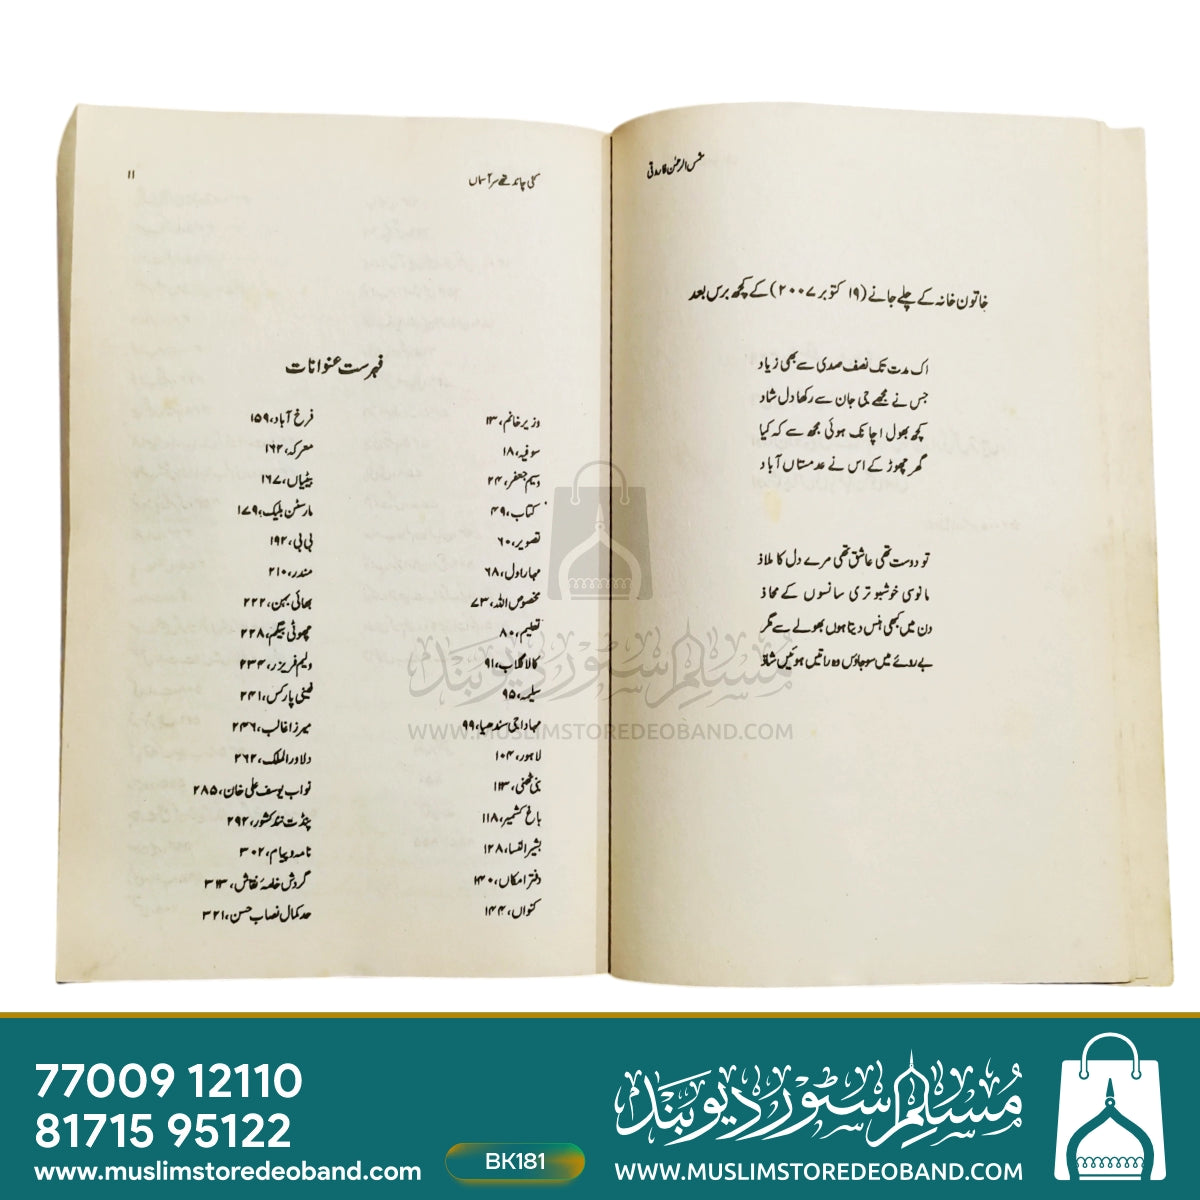 شمس الرحمٰن فاروقی
خاتون خانہ کے چلے جانے (۱۹ اکتوبر ۲۰۰۷) کے کچھ برس بعد
اک مدت تک نصف صدی سے بھی زیاد
جس نے مجھے جی جان سے رکھا دل شاد
کچھ بھول اچانک ہوئی مجھ سے کہ کیا
گھر چھوڑ کے اس نے عدمستاں آباد
تو دوست تھی عاشق تھی مرے دل کا ملاذ
مانوسی خوشبو تری سانسوں کے محاذ
دن میں کبھی ہنس دیتا ہوں بھولے سے مگر
بے روئے میں سو جاؤں وہ راتیں ہوئیں شاذ
کئی چاند تھے سر آسماں
۱۱
فہرست عنوانات
وزیر خانم، ۱۳
سوفیہ، ۱۸
وسیم جعفر، ۲۴
کتاب، ۴۹
تصویر، ۶۰
مہاراول، ۶۸
مخصوص اللہ، ۷۳
تعلیم، ۸۰
کالا گلاب، ۹۱
سلیمہ، ۹۵
مہاداجی سندھیا، ۹۹
لاہور، ۱۰۴
بنی ٹھنی، ۱۱۳
باغ کشمیر، ۱۱۸
بشیر النسا، ۱۲۸
دفتر امکاں، ۱۴۰
کنواں، ۱۴۴
فرخ آباد، ۱۵۹
معرکہ، ۱۶۲
بیٹیاں، ۱۶۷
مارسٹن بلیک، ۱۷۹
بی بی، ۱۹۲
مندر، ۲۱۰
بھائی بہن، ۲۲۲
چھوٹی بیگم، ۲۲۸
ولیم فریزر، ۲۳۴
فینی پارکس، ۲۴۱
میرزا غالب، ۲۴۶
دلاور الملک، ۲۶۲
نواب یوسف علی خان، ۲۸۵
پنڈت نند کشور، ۲۹۲
نامہ و پیام، ۳۰۲
گردش خامۂ نقاش، ۳۱۳
حد کمال نصاب حسن، ۳۲۱
مسلم سٹور دیوبند
WWW.MUSLIMSTOREDEOBAND.COM
77009 12110
81715 95122
www.muslimstoredeoband.com
BK181
مسلم سٹور دیوبند
WWW.MUSLIMSTOREDEOBAND.COM